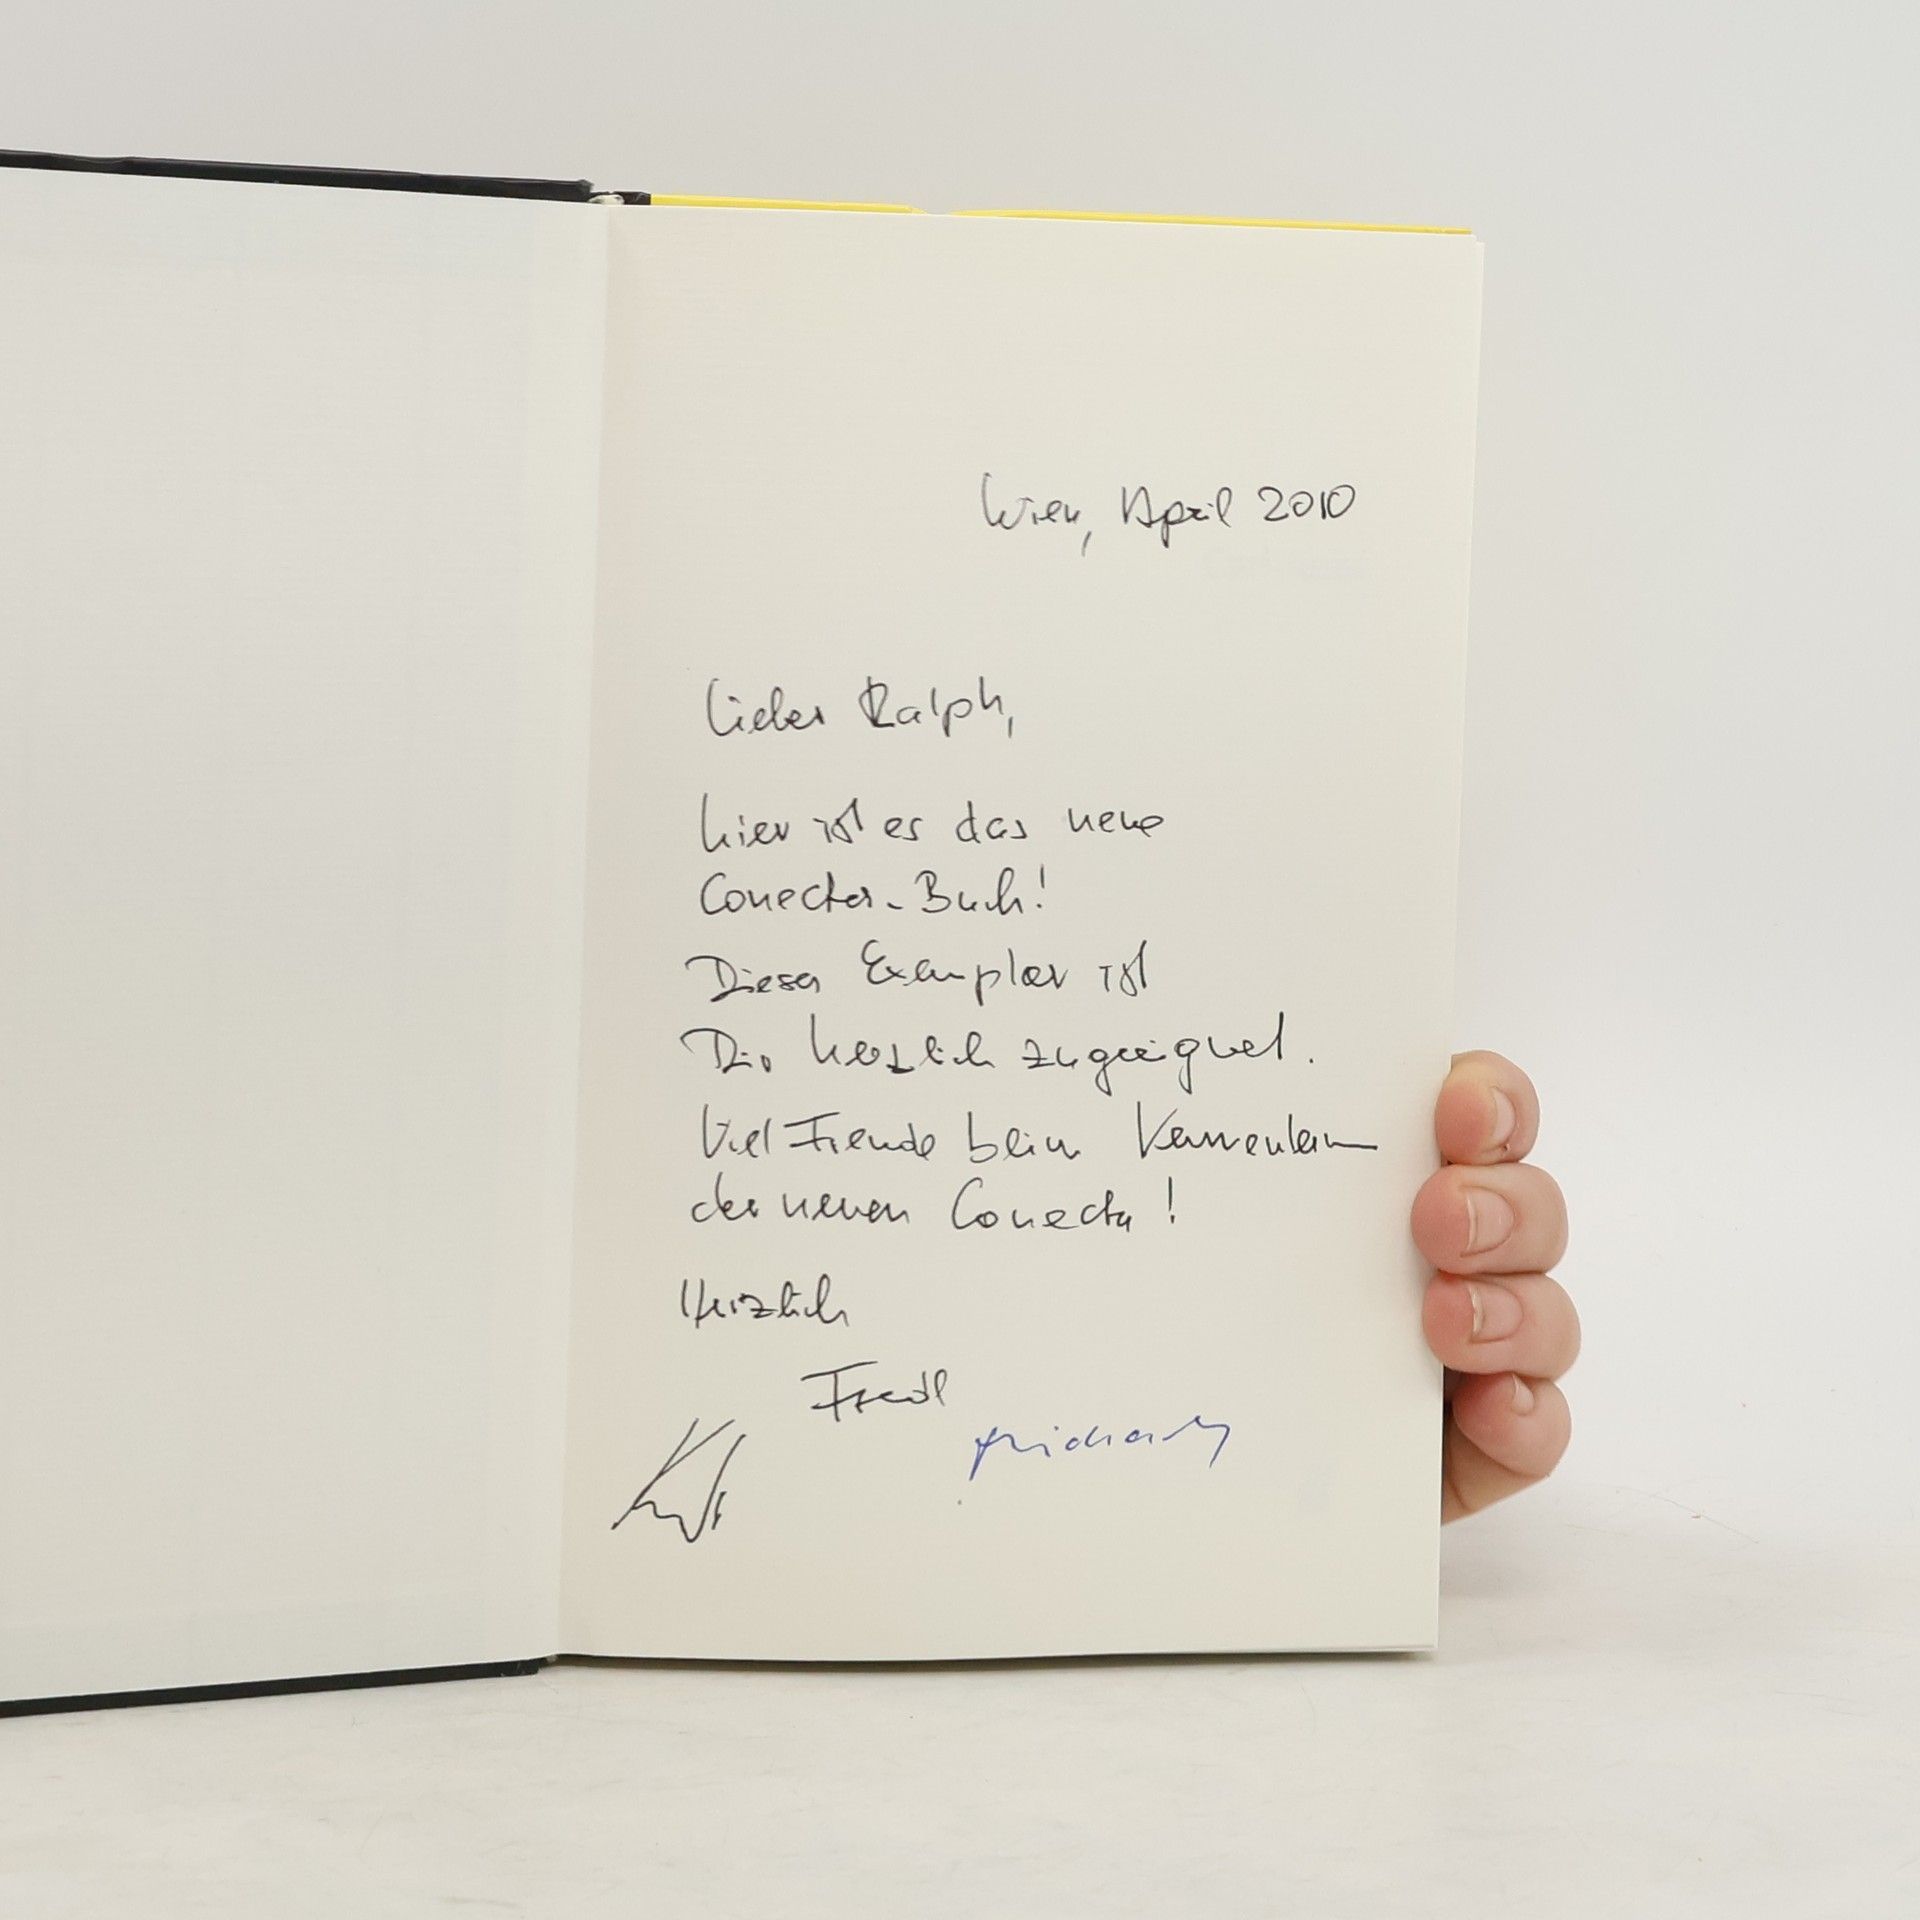 Wien, April 2010
Lieber Ralph,
hier ist es das neue
Conecta-Buch!
Dieses Exemplar ist
Dir herzlich zugeeignet.
Viel Freude beim Kennenlernen
der neuen Conecta!
Herzlich
Fredl